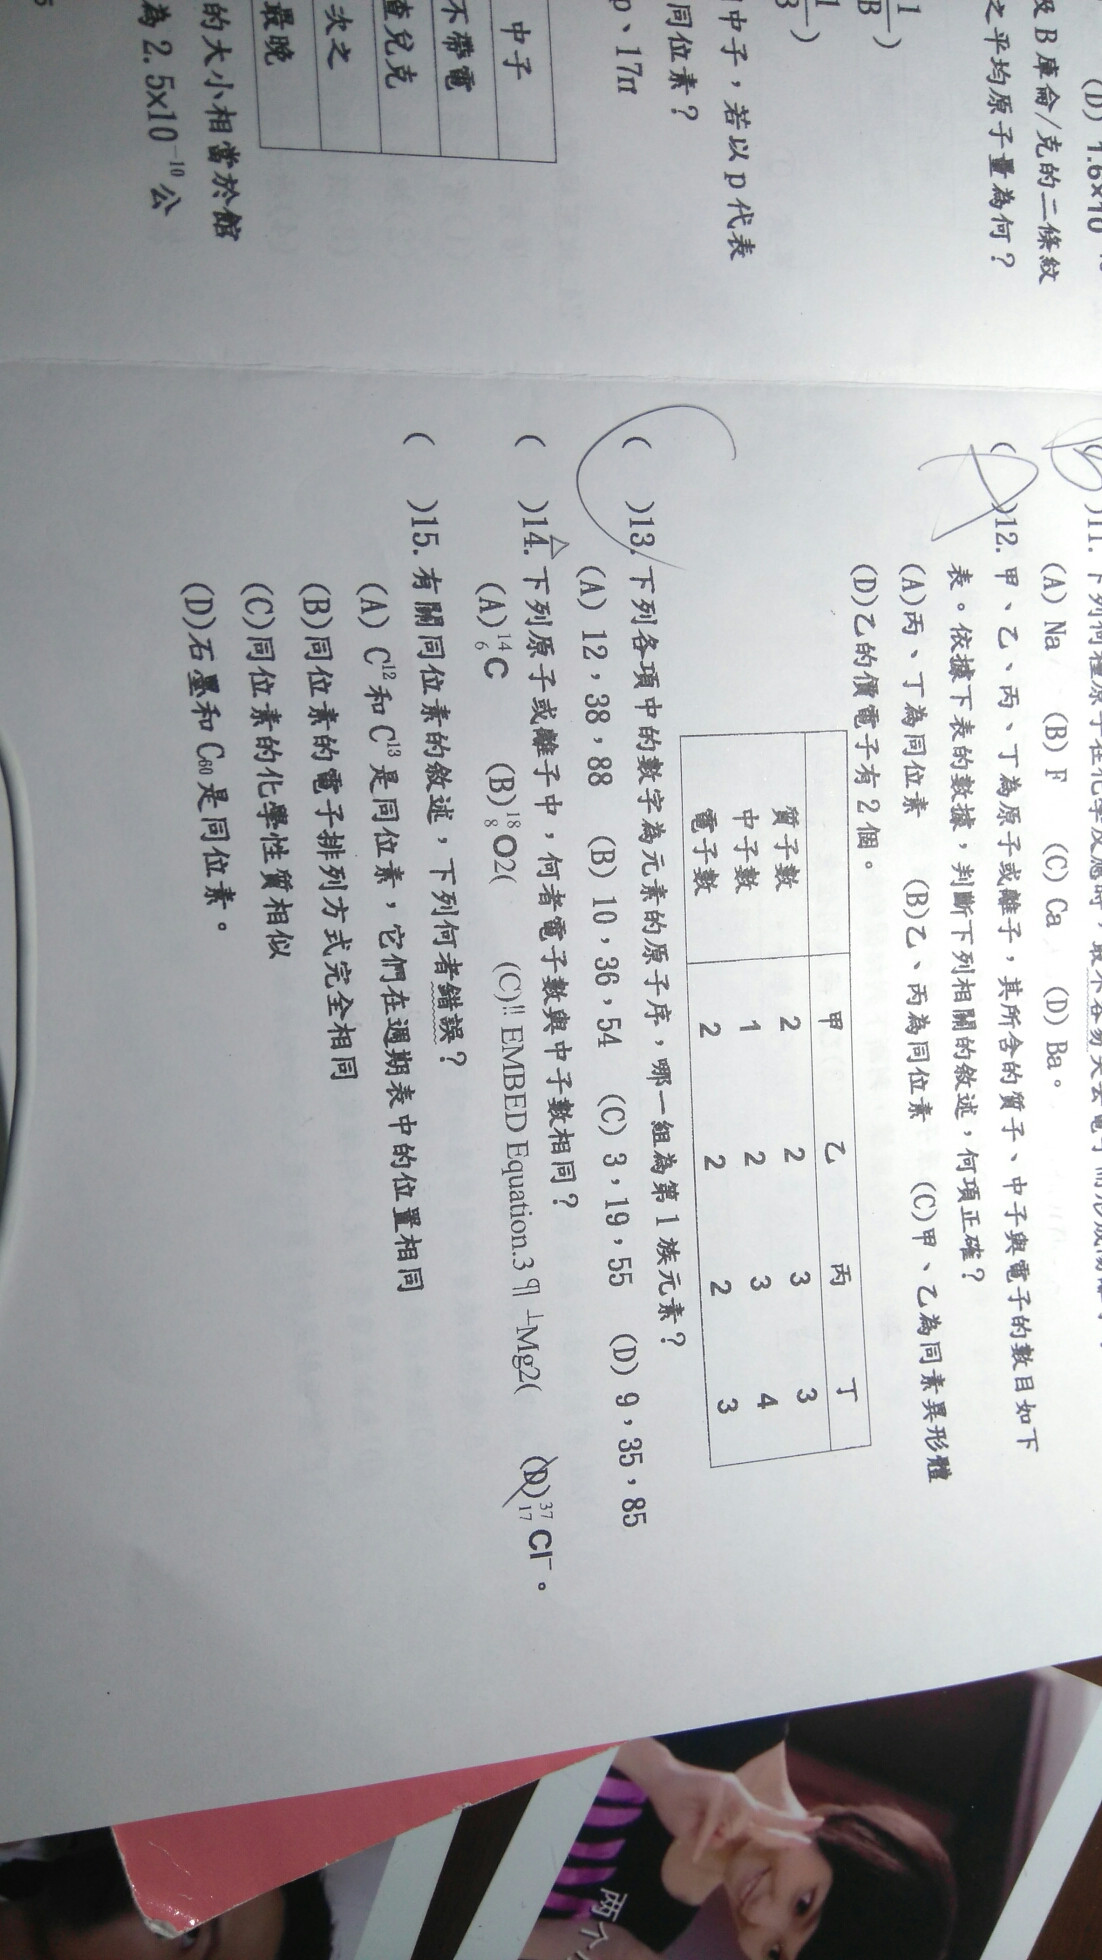 (D) 1.6x10
及 B 庫侖/克的二條紋
之平均原子量為何？
中子，若以 p 代表
同位素？
p、17n
中子
不帶電
查兌克
次之
最晚
的大小相當於館
為 2.5x10⁻¹⁰ 公
(A) Na (B) F (C) Ca (D) Ba。
( A )12. 甲、乙、丙、丁為原子或離子，其所含的質子、中子與電子的數目如下
表。依據下表的數據，判斷下列相關的敘述，何項正確？
(A)丙、丁為同位素 (B)乙、丙為同位素 (C)甲、乙為同素異形體
(D)乙的價電子有 2 個。
甲 乙 丙 丁
質子數 2 2 3 3
中子數 1 2 3 4
電子數 2 2 2 3
( C )13. 下列各項中的數字為元素的原子序，哪一組為第 1 族元素？
(A) 12，38，88 (B) 10，36，54 (C) 3，19，55 (D) 9，35，85
( )14. 下列原子或離子中，何者電子數與中子數相同？
(A) ¹⁴₆C (B) ¹⁸₈O2( (C)!! EMBED Equation.3 ¶ ┴Mg2( (D) ³⁷₁₇Cl⁻。
( )15. 有關同位素的敘述，下列何者錯誤？
(A) C¹²和 C¹³是同位素，它們在週期表中的位置相同
(B)同位素的電子排列方式完全相同
(C)同位素的化學性質相似
(D)石墨和 C₆₀是同位素。